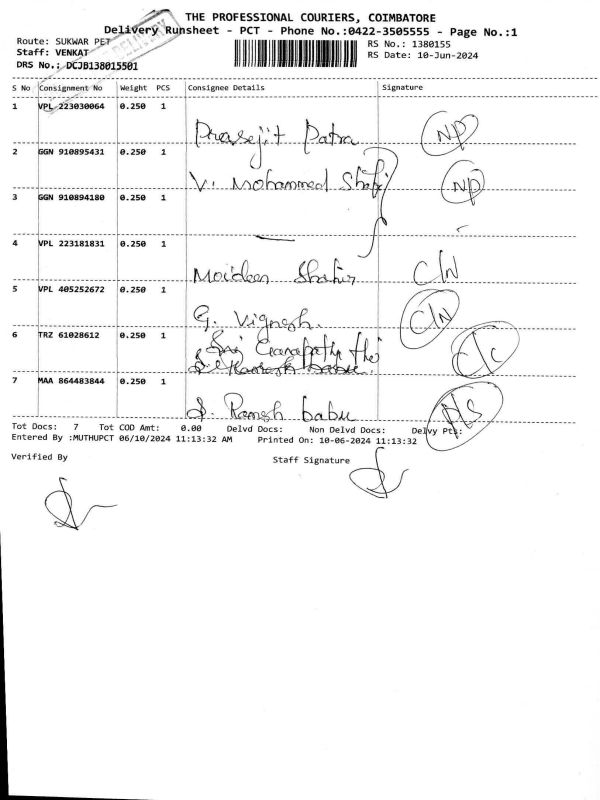 THE PROFESSIONAL COURIERS, COIMBATORE
Delivery Runsheet - PCT - Phone No.:0422-3505555 - Page No.:1
Route: SUKWAR PET
RS No.: 1380155
Staff: VENKAT
RS Date: 10-Jun-2024
DRS No.: DCJB138015501
DELIVERY
S No Consignment No Weight PCS Consignee Details Signature
1 VPL 223030064 0.250 1
Prasejit Patra NP
2 GGN 910895431 0.250 1
V. Mohammed Shafi NP
3 GGN 910894180 0.250 1
4 VPL 223181831 0.250 1
Moideen Shahir C/N
5 VPL 405252672 0.250 1
G. Vignesh. C/N
6 TRZ 61028612 0.250 1
Sri Ganapathy the C/C
S. Ramesh babu.
7 MAA 864483844 0.250 1
S. Ramesh babu N/S
Tot Docs: 7 Tot COD Amt: 0.00 Delvd Docs: Non Delvd Docs: Delvy Pts:
Entered By :MUTHUPCT 06/10/2024 11:13:32 AM Printed On: 10-06-2024 11:13:32
Verified By Staff Signature